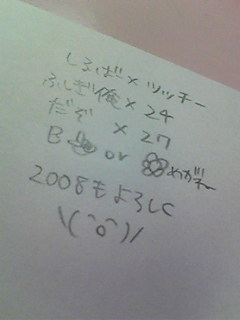 しるば × ツッチー
ふしぎ俺 × 24
だぞ × 27
B or めがネー
2008もよろしく
\(^o^)/